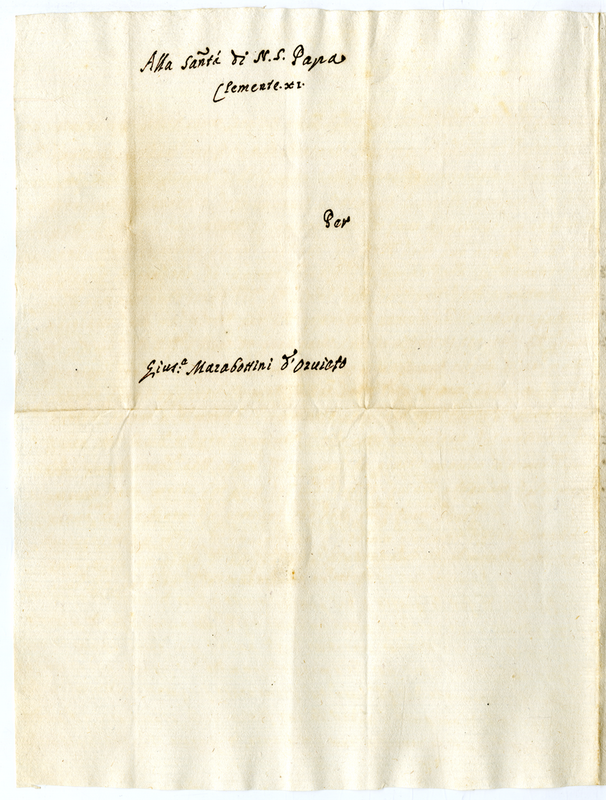 Alla San̄tà di N. S. Papa
Clemente. XI.
Per
Giu:ª Marabottini d'Orvieto